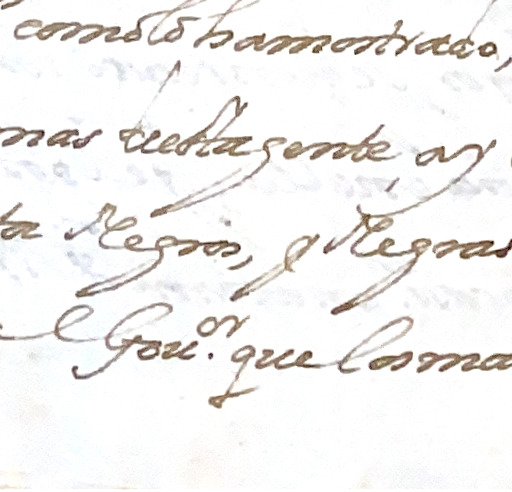 como lo ha mostrado,
mas desta gente, ay
ta Negros, y Negras
el Gou.or que los ma